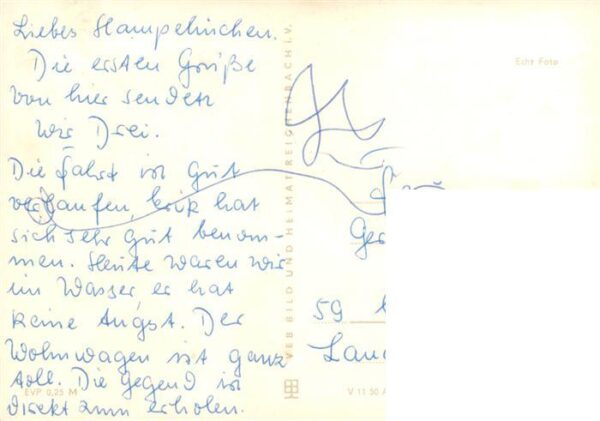 Liebes Hampelinchen.
Die ersten Grüße
von hier senden
wir Drei.
Die Fahrt ist gut
verlaufen, Erik hat
sich sehr gut benom-
men. Heute waren wir
im Wasser, er hat
keine Angst. Der
Wohnwagen ist ganz
toll. Die Gegend ist
direkt zum erholen.
EVP 0,25 M
VEB BILD UND HEIMAT REICHENBACH I. V.
Echt Foto
59
V 11 50